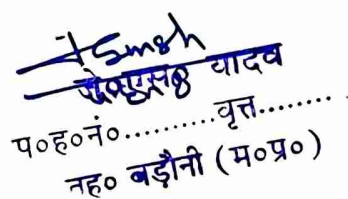 J Singh
जे०एस० यादव
प०ह०नं०..........वृत्त........
तह० बड़ौनी (म०प्र०)